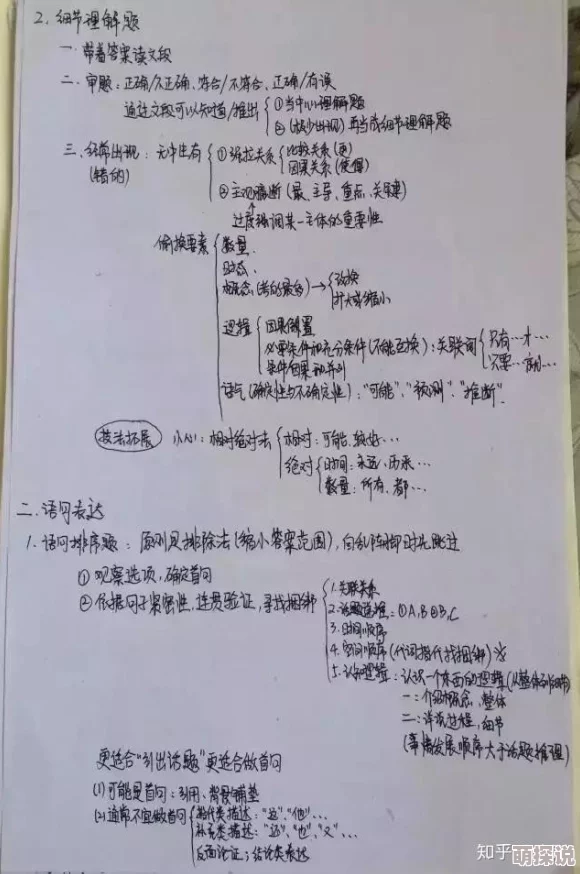 2. 细节理解题
一. 带着答案读文段
二. 审题：正确/不正确、符合/不符合、正确/有误
通过文段可以知道/推出
①当中心理解题
②(极少出现)再当成细节理解题
三. 经常出现：无中生有
(错的)
①强拉关系
比较关系(更)
因果关系(使得)
②主观臆断(最、主导、重点、关键)
过度强调某一主体的重要性
偷换要素
数量.
时态.
概念(考的最多)→
改换
扩大或缩小
逻辑
因果倒置
必要条件和充分条件(不能互换)：关联词
只有…才…
只要…就…
条件因果和并列
语气(确定性与不确定性)："可能"、"预测"、"推断".
技法拓展
小心：相对绝对法
相对：可能、较好…
绝对
时间：永远、历来…
数量：所有、都…
二. 语句表达
1. 语句排序题：原则是排除法(缩小答案范围),自乱阵脚时先跳过
①观察选项,确定首句
②依据句子紧密性,连贯验证,寻找捆绑
1. 关联关系
2. 话题递推：①A,B②B,C
3. 时间顺序
4. 空间顺序(代词指代找捆绑)※
5. 认知逻辑：认识一个东西的逻辑(从整体到细节)
一：介绍概念、整体
二：详说过程、细节
(事情发展顺序大于话题推理)
更适合"引出话题"更适合做首句
(1)可能是首句：引用、背景铺垫
(2)通常不宜做首句
指代类描述："这"、"他"…
补充类描述："还"、"也"、"又"…
反面论证；结论类表达
知乎
萌探说